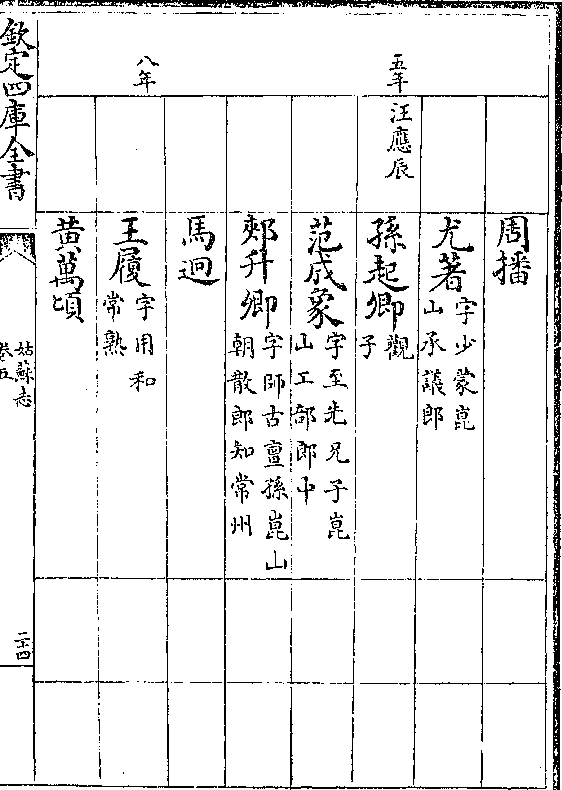 周播
尤著 字少蒙崑
山承議郎
五年 汪應辰
孫起卿 觀
子
范成象 字至先兄子崑
山工部郎中
郟升卿 字師古亶孫崑山
朝散郎知常州
馬迥
八年
王履 字用和
常熟
黄萬頃
欽定四庫全書
姑蘇志
卷五
二十四